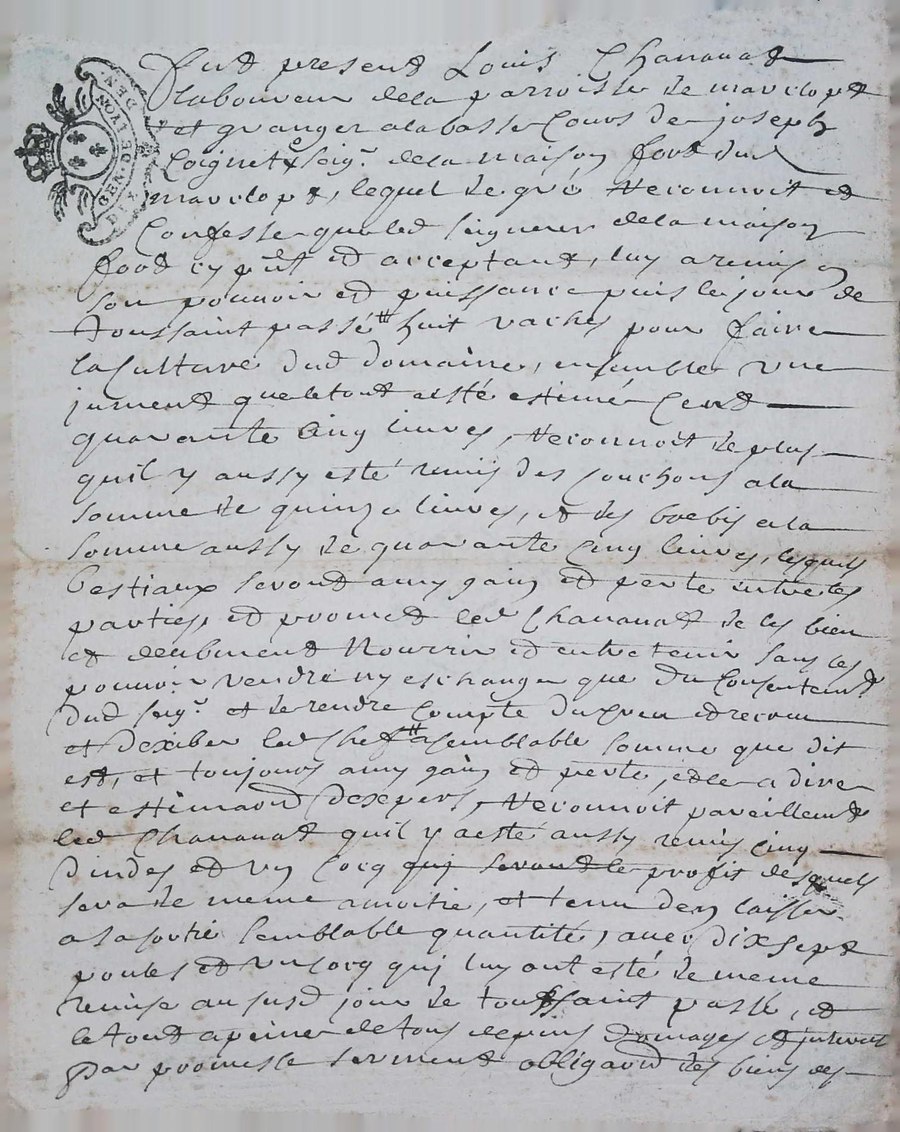 GEN. DE LYON
DIX DEN.
Fut present Louis Chananat
laboureur de la parroisse de marclopt
et granger a la basse Cours de joseph
Coignet Seigr de la maison fort dud
marclopt, lequel de gré Reconnoit et
Confesse que led seigneur de la maison
fort cy pnt et acceptant, luy a remis en
son pouvoir et puissance puis le jour de
toussaint passé huit vaches pour faire
la Culture dud domaine, ensemble une
jument que le tout a esté estimé Cent
quarante Cinq livres, Reconnoit de plus
quil y aussy esté remis des couchons a la
somme de quinze livres, et des brebis a la
somme aussy de quarante Cinq livres, lesquels
bestiaux seront a my gain et perte entre les
parties, et promet led Chananat de les bien
et deubment Nourrir et entretenir sans les
pouvoir vendre ny eschanger que du Consentemt
dud seigr et de rendre Compte du creu et recreu
et dexiber led Chef a semblable somme que dit
est, et toujours a my gain et perte, et le a dire
et estimaon dexpers, Reconnoit pareillemt
led Chananat quil y a esté aussy remis cinq
dindes et un Cocq quj seront le profit desquels
sera de meme a moitié, et tenu den laisser
a la sortie semblable quantité, avec dix sept
poules et un cocq quj luy ont esté de meme
remise au susd jour de toussaint passé, et
le tout a peine de tous depens domages et interest
Par promesse serment obligaon des biens des